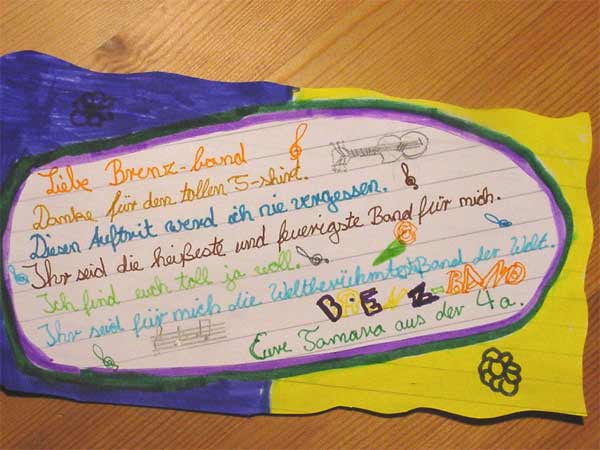 Liebe Brenz-band
Danke für den tollen T-shirt.
Diesen Auftrit werd ich nie vergessen.
Ihr seid die heißeste und feuerigste Band für mich.
Ich find euch toll ja woll.
Ihr seid für mich die Weltberühmtest Band der Welt.
BRENZ-BAND
Eure Tamara aus der 4a.